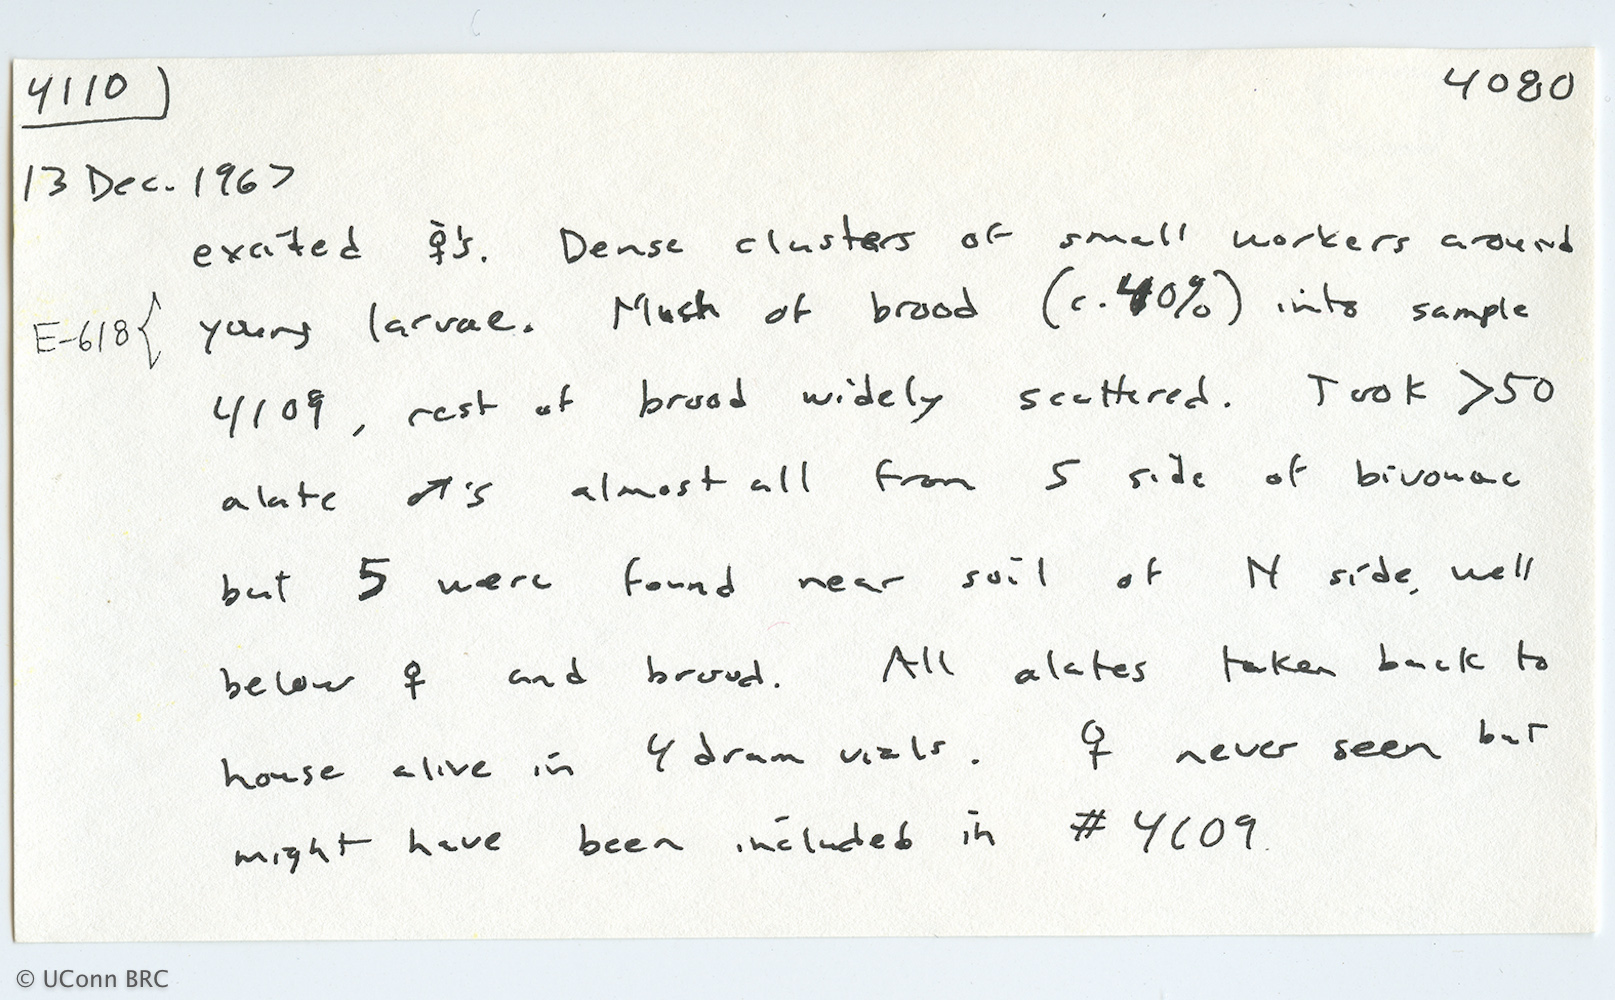 4110)
4080
13 Dec. 1967
excited ☿'s. Dense clusters of small workers around
E-618{ young larvae. Much of brood (c. 40%) into sample
4109, rest of brood widely scattered. Took >50
alate ♂'s almost all from S side of bivouac
but 5 were found near soil of N side, well
below ♀ and brood. All alates taken back to
house alive in 4 dram vials. ♀ never seen but
might have been included in # 4109.
© UConn BRC